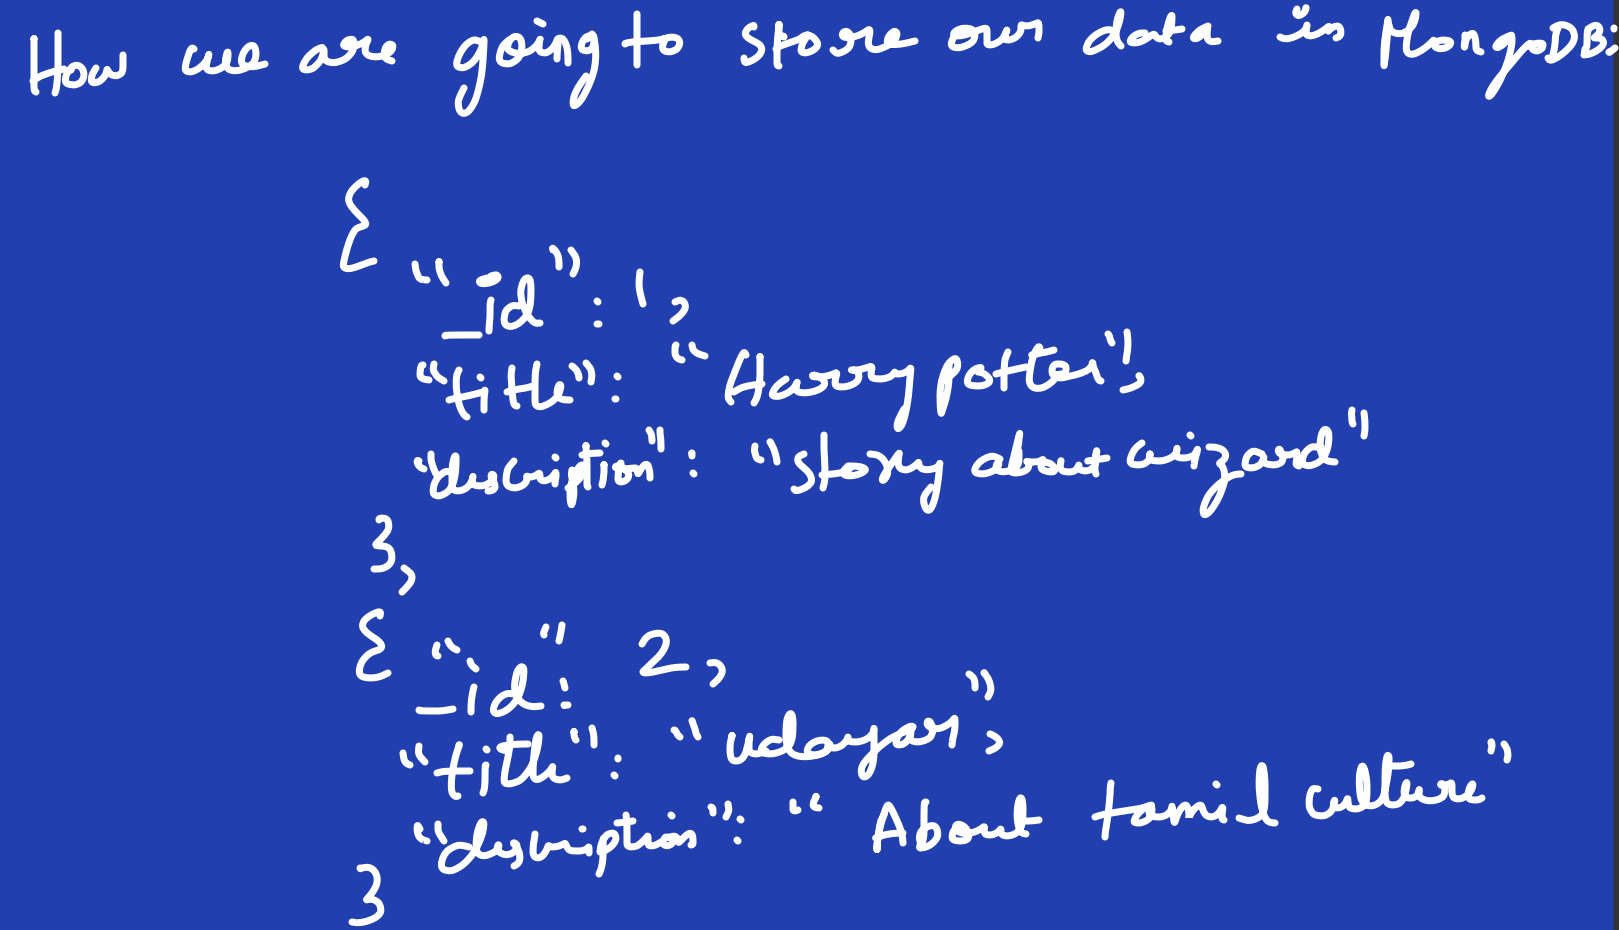 How we are going to store our data in MongoDB:
{
"_id": 1,
"title": "Harry potter",
"description": "story about wizard"
},
{ "_id": 2,
"title": "udayar",
"description": "About tamil culture"
}